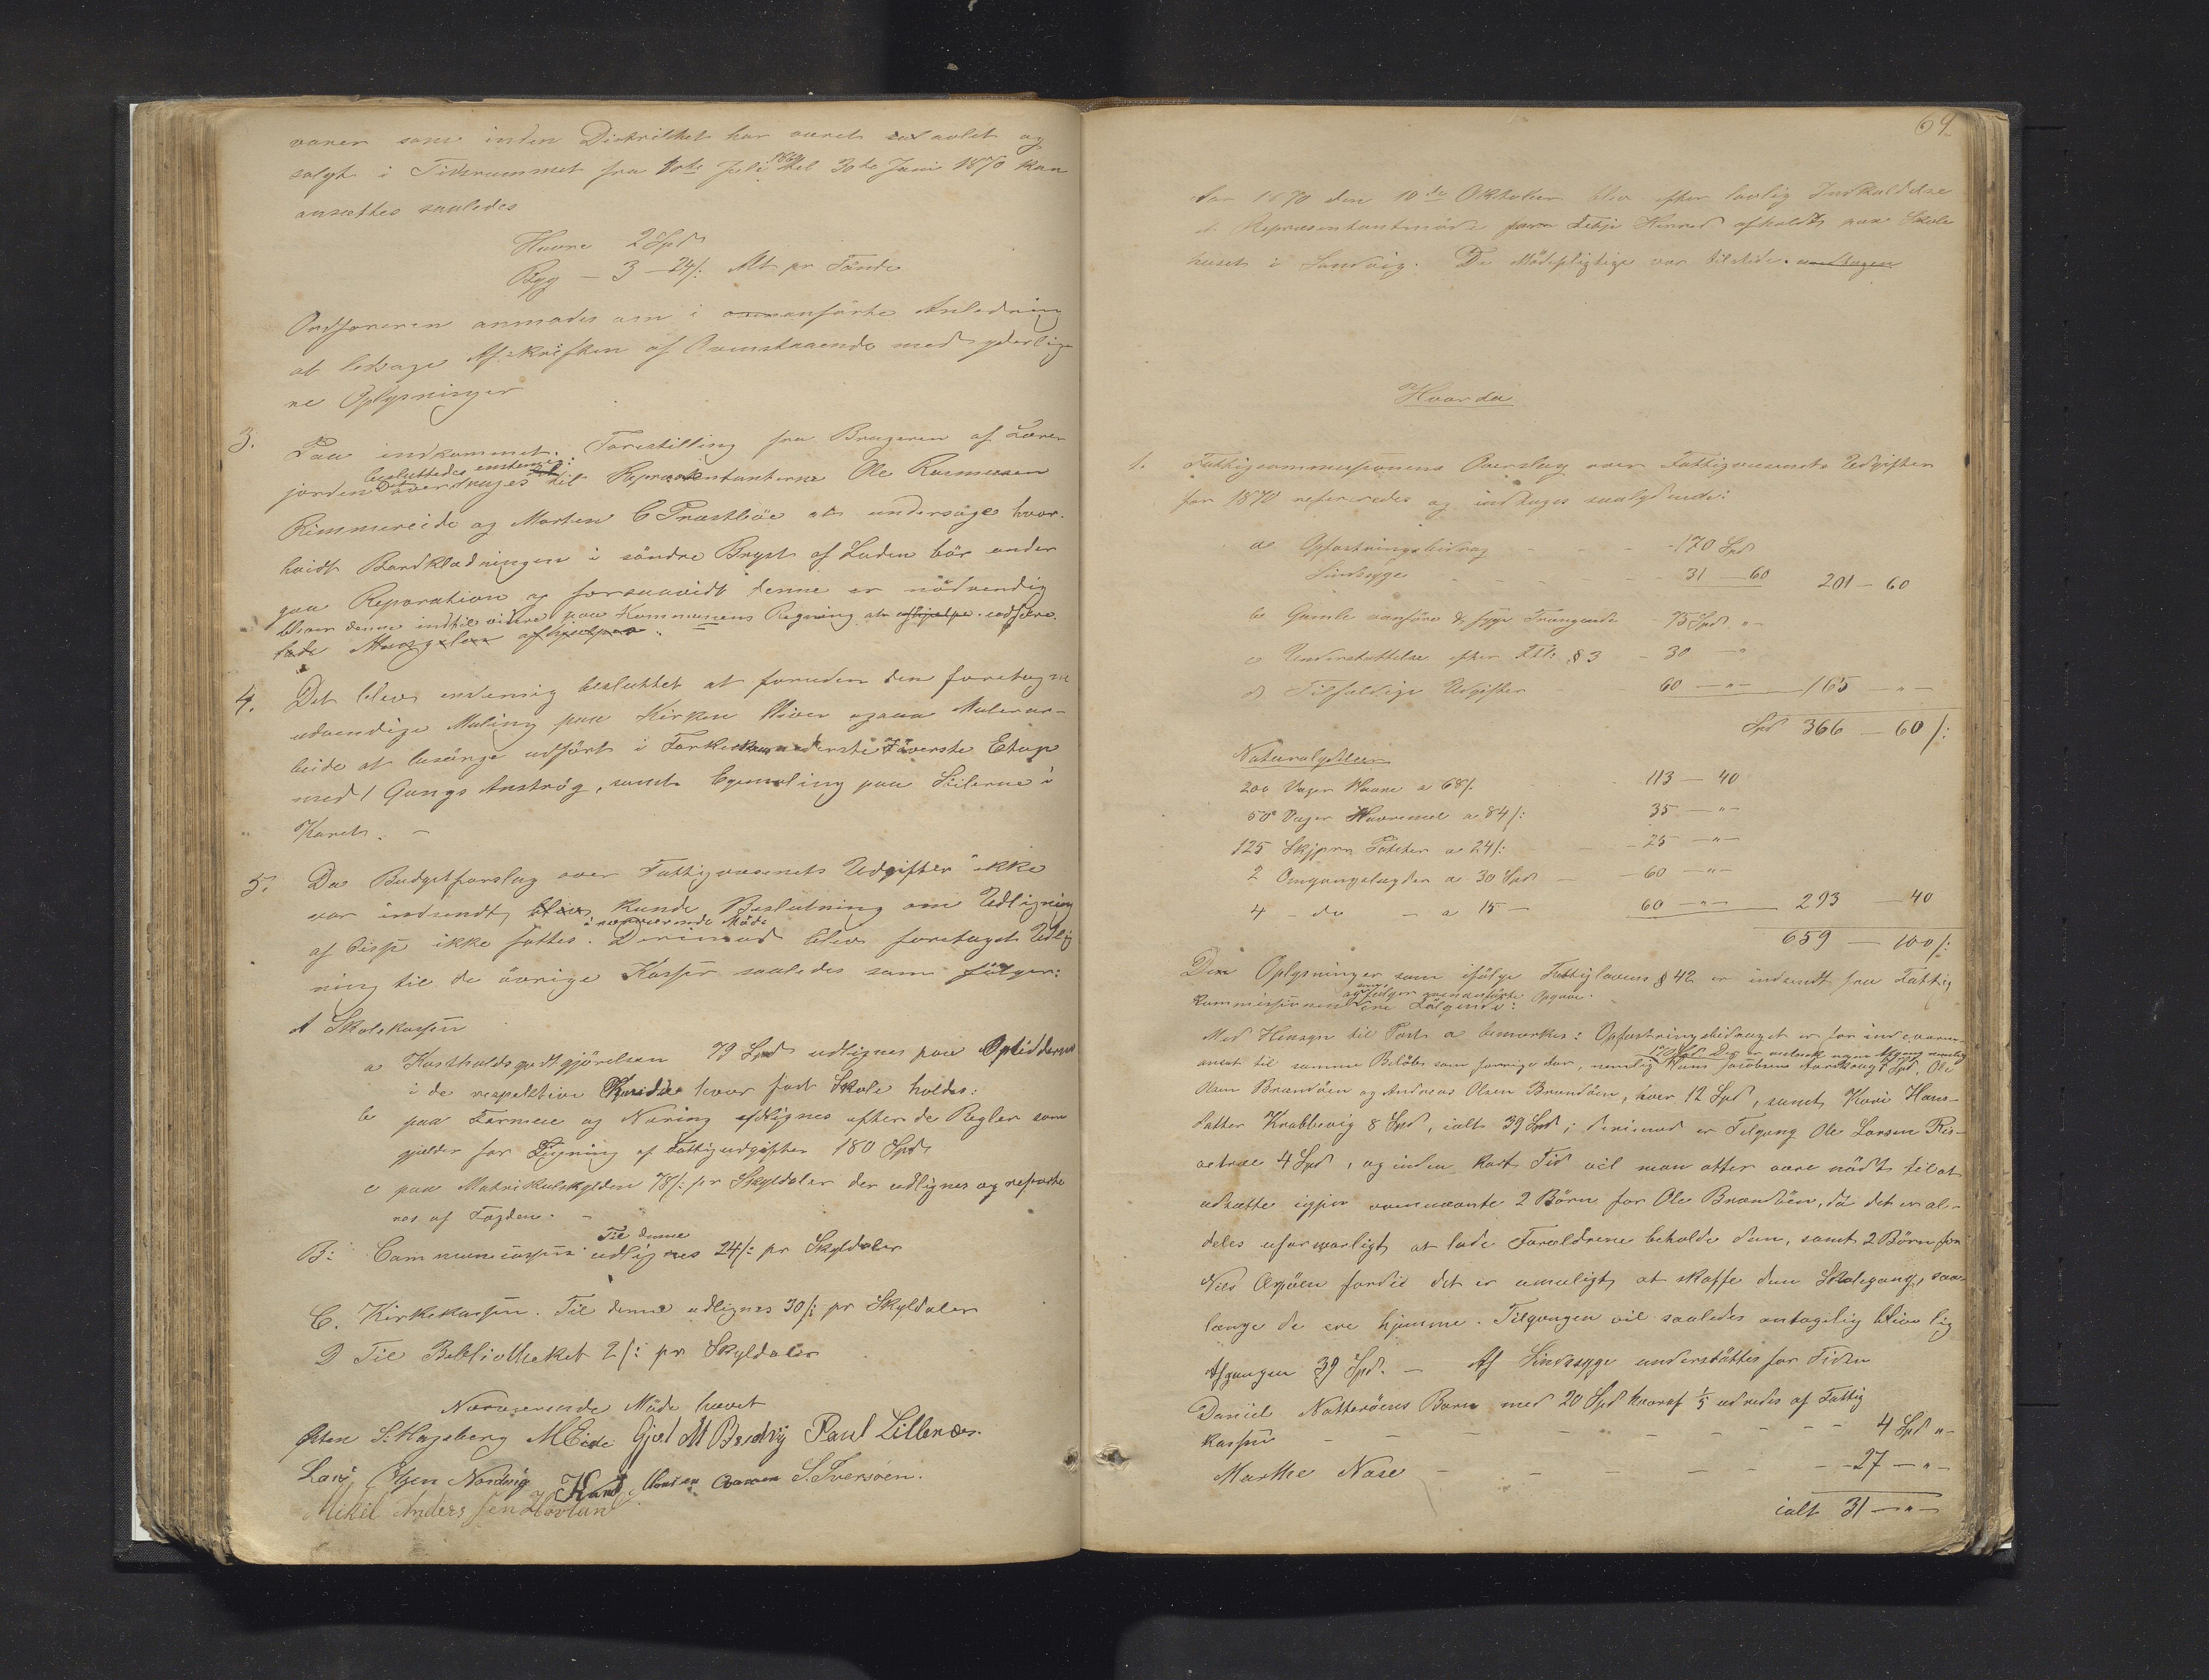 varer som inden Distriktet har været avlet og
solgt i Tidsrummet fra 1ste Juli 1869 til 30te Juni 1870 kan
ansættes saaledes
Havre 2 Spd
Byg — 3 — 24/: Alt pr Tønde
Ordføreren anmodes om i anførte Anledning
at besørge Afskriften af Ovenstaaende med yderlige
re Oplysninger
3. Paa indkommet Forestilling fra Brugeren af Lærer
besluttedes eenstemmig:
jorden Det overdrages til Repræsentanterne Ole Rasmussen
Rimmereide og Morten C Præstbøe at undersøge hvor-
hvidt Bordklædningen i søndre Bryst af Laden bør under
gaa Reparation og forsaavidt denne er nødvendig
blive denne indtil videre paa Kommunens Regning at afhjælpe udføre.
lade Manglen afhjælpes
4. Det blev endrenig besluttet at foruden den foretagne
udvendige Maling paa Kirken bliver ogsaa Malerar-
beide at besørge udført i nederste & øverste Etage
med 1 Gangs Anstrøg, samt Egemaling paa Søilerne i
Koret. —
5. Da Budgetforslag over Fattigvæsenets Udgifter ikke
var indsendt, blev kunde Beslutning om Udligning
i nærværende Møde
af Disse ikke fattes. Derimod blev foretaget Udlig
ning til de øvrige Kasser saaledes som følger:
A Skolekassen
a Kostholdsgodtgjørelsen 79 Spd udlignes paa Opsidderne
i de respektive Kredse hvor fast Skole holdes:
b paa Formue og Næring udlignes efter de Regler som
gjælder for Ligning af Fattigudgifter 180 Spd
c paa Matrikulskylden 78/: pr Skyldaler der udlignes og reparte
res af Fogden. —
Til denne
B: Communecassen udlignes 24/: pr Skyldaler
C. Kirkekassen. Til denne udlignes 30/: pr Skyldaler
D Til Bibliotheket 2/: pr Skyldaler
Nærværende Møde hævet
Østen S. Hagsberg M Eide Gjert M Brudvig Paul Lillenæs.
Lars Olsen Nordvig Knud S. Iversøen.
Mikel Anders sen Hovlan
69
Aar 1870 den 10de Oktober blev efter lovlig Indkaldelse
et Repræsentantmøde for Fitje Herred afholdt paa Skole
huset i Sandvig. De Mødepligtige var tilstede. undtagen
Hvorda
1. Fattigcommissionens Overslag over Fattigvæsenets Udgifter
for 1870 refereredes og indtages saalydende:
a Opfostringsbidrag — 170 Spd
Sindssyge — 31 — 60 201 — 60
b Gamle vanføre & syge Trængende — 75 Spd "—
c Understøttelse efter § 3 — 30 — "
d Tilfældige Udgifter — 60 — " — 165 — " —
Spd 366 — 60/:
Naturalydelser
200 Vaager Havre a 68/: 113 — 40
50 Vaager Havremel a 84/: 35 — " —
125 Skjpr Poteter a 24/: — 25 — "
2 Omgangslægder a 30 Spd — 60 — " —
4 do — a 15 — 60 — " — 293 — 40
659 — 100/:
De Oplysninger som ifølge Fattiglovens § 42 er indsendt fra Fattig
som følger ovenanførte Opgave.
kommissionen ere Følgende:
Med Hensyn til Post a bemærkes: Opfostringsbidraget er for indeværen-
170 Spd. Der er vistnok nogen Afgang nemlig
ansat til samme Beløb som forrige Aar, nemlig Hans Jacobsens Spd, Ole
Olsen Brandøen og Andreas Olsen Brandøen, hver 12 Spd, samt Kari Hans-
datter Krabbevig 8 Spd, ialt 39 Spd; derimod er Tilgang Ole Larsen Ris-
4 Spd, og inden kort Tid vil man atter være nødt til at
udsætte igjen ovennævnte 2 Børn for Ole Brandøen, da det er al-
deles uforsvarligt at lade Forældrene beholde dem, samt 2 Børn for
Nils fordi det er umuligt at skaffe dem Skolegang, saa-
længe de ere hjemme. Tilgangen vil saaledes antagelig blive lig
Afgangen 39 Spd. — Af Sindssyge understøttes for Tiden
Daniel Natterøens Barn med 20 Spd hvoraf 1/5 udredes af Fattig
kassen — — — — — — — — 4 Spd "—
Marthe Nase — — — — — — 27 — " —
ialt 31 — " —